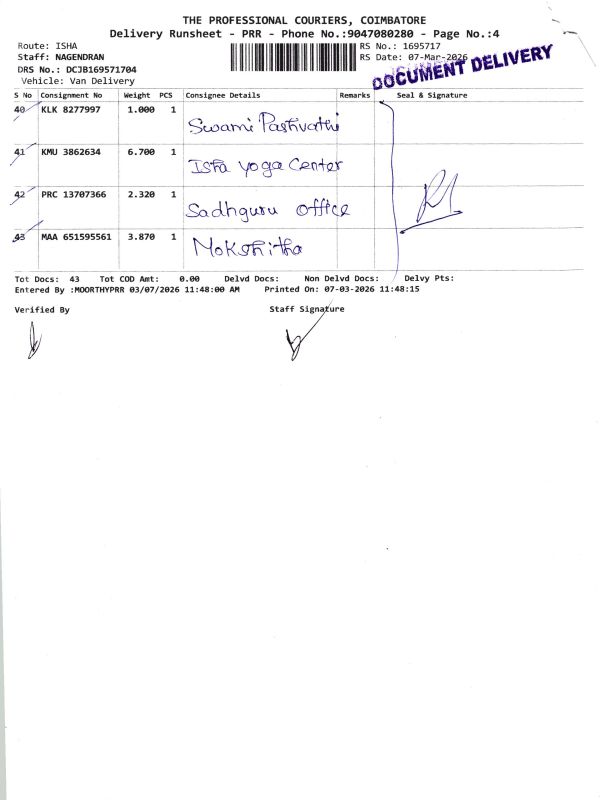 THE PROFESSIONAL COURIERS, COIMBATORE
Delivery Runsheet - PRR - Phone No.:9047080280 - Page No.:4
Route: ISHA RS No.: 1695717
Staff: NAGENDRAN RS Date: 07-Mar-2026
DRS No.: DCJB169571704
Vehicle: Van Delivery
DOCUMENT DELIVERY
S No Consignment No Weight PCS Consignee Details Remarks Seal & Signature
40 KLK 8277997 1.000 1 Swami Pashvathi
41 KMU 3862634 6.700 1 Isha yoga Center
42 PRC 13707366 2.320 1 Sadhguru office
43 MAA 651595561 3.870 1 Mokshitha
Tot Docs: 43 Tot COD Amt: 0.00 Delvd Docs: Non Delvd Docs: Delvy Pts:
Entered By :MOORTHYPRR 03/07/2026 11:48:00 AM Printed On: 07-03-2026 11:48:15
Verified By Staff Signature